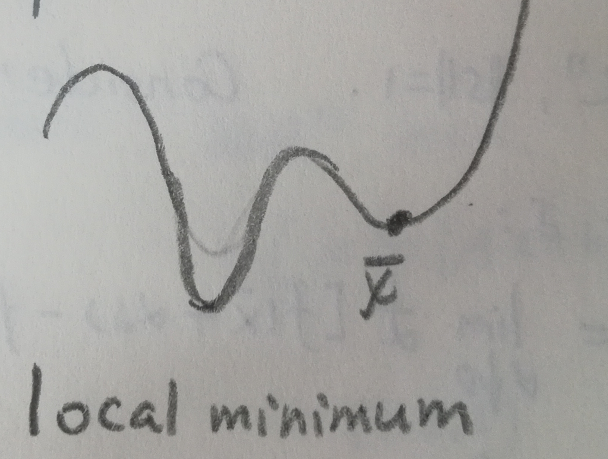 x̄
local minimum